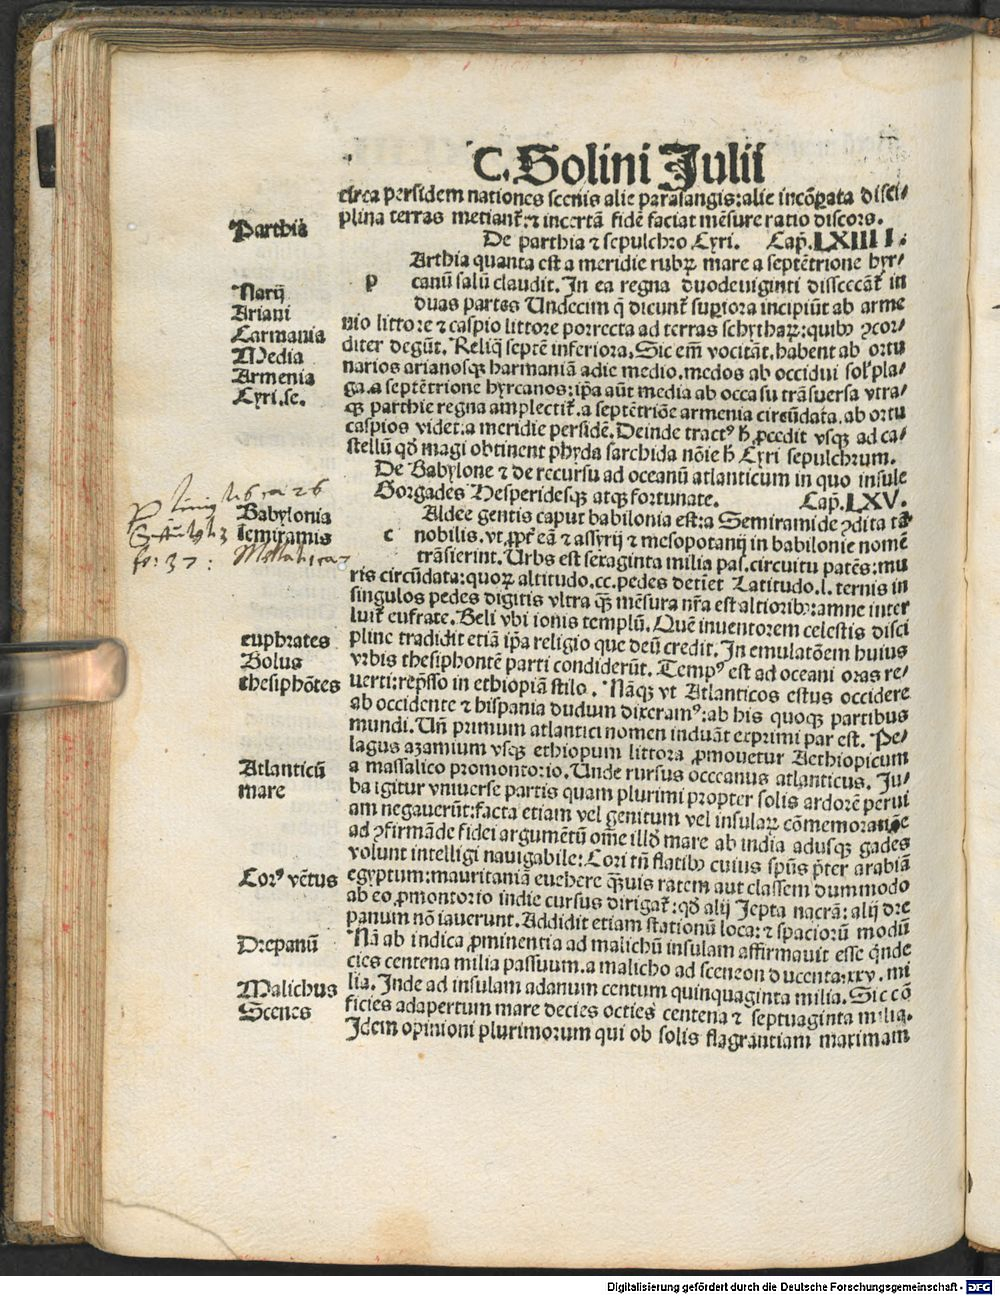 C. Solini Julii
circa persidem nationes scenis alie parasangis: alie incõp̱ata disci⸗
plina terras metianť: ⁊ incertã fidē faciat mēsure ratio discors.
Parthia
De parthia ⁊ sepulchro Cyri. Cap̃. LXIIII.
Arthia quanta est a meridie rubꝝ mare a septētrione hyr⸗
p canũ salũ claudit. In ea regna duodeuiginti dissecãť in
Narij
duas partes Undecim q̄ dicunť sup̱iora incipiũt ab arme
Ariani
nio littore ⁊ caspio littore porrecta ad terras schytharꝝ: quibꝰ ꝯcor⸗
Carmania
diter degũt. Reliq̄ septē inferiora. Sic em̄ vocitãt. habent ab ortu
Media
narios arianosqꝫ harmaniã adie medio. medos ab occidui solʼ pla⸗
Armenia
ga. a septētrione hyrcanos: ip̃a aũt media ab occasu trãsuersa vtra⸗
Cyri. se.
qꝫ parthie regna amplectiť. a septētriõe armenia circũdata. ab ortu
caspios videt: a meridie persidē. Deinde tractꝰ ħ ꝓcedit vsqꝫ ad ca⸗
stellũ qď magi obtinent phyda sarchida nõie ħ Cyri sepulchrum.
De Babylone ⁊ de recursu ad oceanũ atlanticum in quo insule
Gorgades Hesperidesqꝫ atqꝫ fortunate. Cap̃. LXV.
Babylonia
Aldee gentis caput babilonia est: a Semiramide ꝯdita tã
Semiramis
c nobilis. vt ꝓpť eã ⁊ assyrij ⁊ mesopotanij in babilonie nomē
trãsierint. Urbs est sexaginta milia pas. circuitu patēs: mu
ris circũdata: quoꝝ altitudo. cc. pedes detiet Latitudo. l. ternis in
singulos pedes digitis vltra q̃ꝫ mēsura nr̃a est altioribꝰ: amne inter
luiť eufrate. Beli vbi ionis templũ. Quē inuentorem celestis disci
euphrates
pline tradidit etiã ip̃a religio que deũ credit. In emulatõem huius
Bolus
vrbis thesiphontē parti condiderũt. Tempꝰ est ad oceani oras re⸗
thesiphõtes
uerti: rep̃sso in ethiopiã stilo. Nãqꝫ vt Atlanticos estus occidere
ab occidente ⁊ hispania dudum dixeramꝰ: ab his quoqꝫ partibus
mundi. Uñ primum atlantici nomen induãt exprimi par est. Pe⸗
lagus azamium vsqꝫ ethiopum littora ꝓmouetur Aethiopicum
Atlanticũ
a massalico promontorio. Unde rursus occeanus atlanticus. Ju⸗
mare
ba igitur vniuerse partis quam plurimi propter solis ardorē perui
am negauerũt: facta etiam vel genitum vel insularꝝ cõmemoratiõe
ad ꝯfirmãde fidei argumētũ om̃e illď mare ab india adusqꝫ gades
volunt intelligi nauigabile: Cori tñ flatibꝰ cuius sp̃us p̃ter arabiã
Corꝰ vētus
egyptum: mauritaniã euehere q̃uis ratem aut classem dummodo
ab eo ꝓmontorio indie cursus dirigať: qď alij Jepta nacrã: alij dre
panum nõ iauerunt. Addidit etiam stationũ loca: ⁊ spaciorũ modũ
Drepanũ
Nã ab indica ꝓminentia ad malichũ insulam affirmauit esse q̃nde
cies centena milia passuum. a malicho ad sceneon ducenta. xxv. mi
Malichus
lia. Inde ad insulam adanum centum quinquaginta milia. Sic cõ
Scenes
ficies ad apertum mare decies octies centena ⁊ septuaginta milia.
Idem opinioni plurimorum qui ob solis flagrantiam maximam
Digitalisierung gefördert durch die Deutsche Forschungsgemeinschaft - DFG